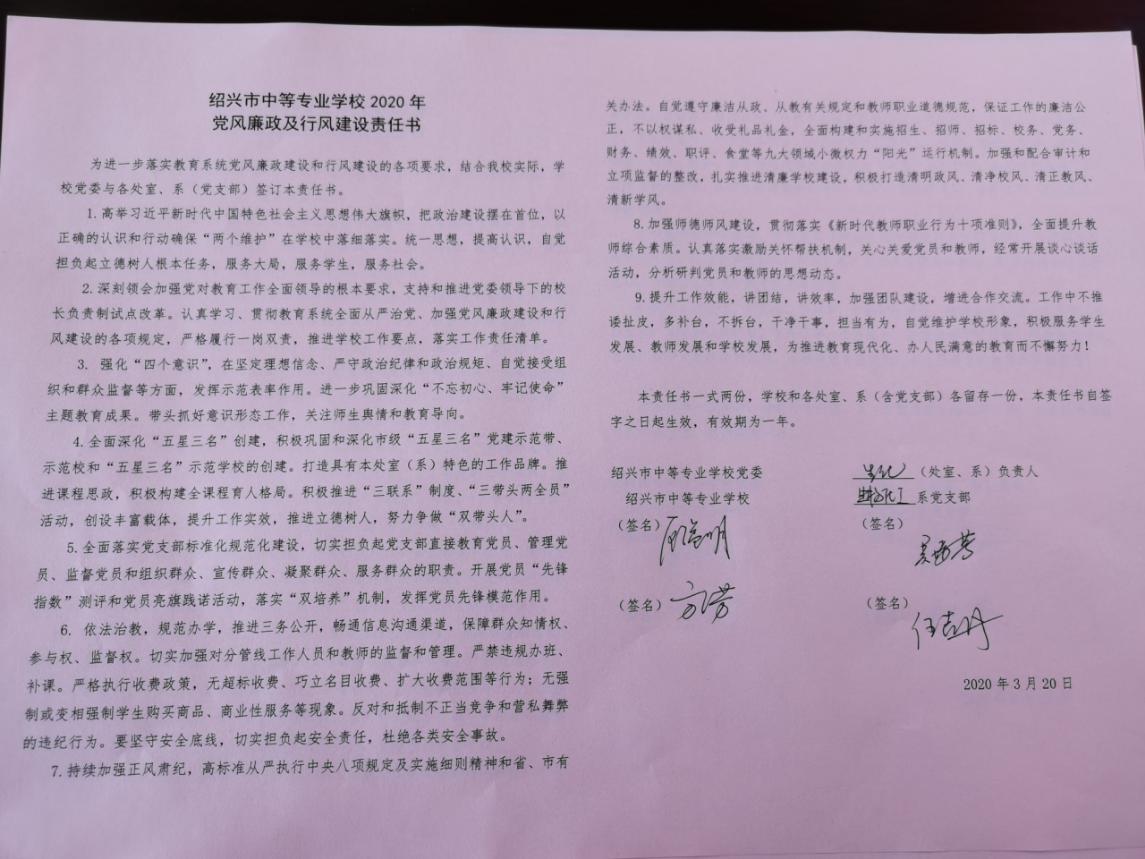 绍兴市中等专业学校 2020 年
党风廉政及行风建设责任书
为进一步落实教育系统党风廉政建设和行风建设的各项要求，结合我校实际，学
校党委与各处室、系（党支部）签订本责任书。
1.高举习近平新时代中国特色社会主义思想伟大旗帜，把政治建设摆在首位，以
正确的认识和行动确保“两个维护”在学校中落细落实。统一思想，提高认识，自觉
担负起立德树人根本任务，服务大局，服务学生，服务社会。
2.深刻领会加强党对教育工作全面领导的根本要求，支持和推进党委领导下的校
长负责制试点改革。认真学习、贯彻教育系统全面从严治党、加强党风廉政建设和行
风建设的各项规定，严格履行一岗双责，推进学校工作要点，落实工作责任清单。
3. 强化“四个意识”，在坚定理想信念、严守政治纪律和政治规矩、自觉接受组
织和群众监督等方面，发挥示范表率作用。进一步巩固深化“不忘初心、牢记使命”
主题教育成果。带头抓好意识形态工作，关注师生舆情和教育导向。
4.全面深化“五星三名”创建，积极巩固和深化市级“五星三名”党建示范带、
示范校和“五星三名”示范学校的创建。打造具有本处室（系）特色的工作品牌。推
进课程思政，积极构建全课程育人格局。积极推进“三联系”制度、“三带头两全员”
活动，创设丰富载体，提升工作实效，推进立德树人，努力争做“双带头人”。
5.全面落实党支部标准化规范化建设，切实担负起党支部直接教育党员、管理党
员、监督党员和组织群众、宣传群众、凝聚群众、服务群众的职责。开展党员“先锋
指数”测评和党员亮旗践诺活动，落实“双培养”机制，发挥党员先锋模范作用。
6. 依法治教，规范办学，推进三务公开，畅通信息沟通渠道，保障群众知情权、
参与权、监督权。切实加强对分管线工作人员和教师的监督和管理。严禁违规办班、
补课。严格执行收费政策，无超标收费、巧立名目收费、扩大收费范围等行为；无强
制或变相强制学生购买商品、商业性服务等现象。反对和抵制不正当竞争和营私舞弊
的违纪行为。要坚守安全底线，切实担负起安全责任，杜绝各类安全事故。
7.持续加强正风肃纪，高标准从严执行中央八项规定及实施细则精神和省、市有
关办法。自觉遵守廉洁从政、从教有关规定和教师职业道德规范，保证工作的廉洁公
正，不以权谋私、收受礼品礼金，全面构建和实施招生、招师、招标、校务、党务、
财务、绩效、职评、食堂等九大领域小微权力“阳光”运行机制。加强和配合审计和
立项监督的整改，扎实推进清廉学校建设，积极打造清明政风、清净校风、清正教风、
清新学风。
8.加强师德师风建设，贯彻落实《新时代教师职业行为十项准则》，全面提升教
师综合素质。认真落实激励关怀帮扶机制，关心关爱党员和教师，经常开展谈心谈话
活动，分析研判党员和教师的思想动态。
9.提升工作效能，讲团结，讲效率，加强团队建设，增进合作交流。工作中不推
诿扯皮，多补台，不拆台，干净干事，担当有为，自觉维护学校形象，积极服务学生
发展、教师发展和学校发展，为推进教育现代化、办人民满意的教育而不懈努力！
本责任书一式两份，学校和各处室、系（含党支部）各留存一份，本责任书自签
字之日起生效，有效期为一年。
绍兴市中等专业学校党委 （处室、系）负责人
绍兴市中等专业学校 系党支部
（签名） （签名）
（签名）方芳 （签名）
2020 年 3 月 20 日